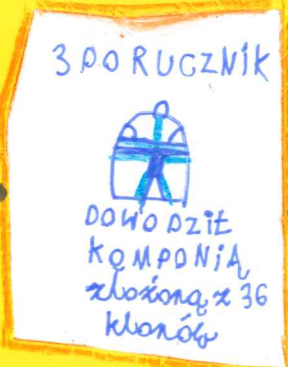 3 PORUCZNIK
DOWODZIŁ
KOMPONIĄ
złożoną z 36
klonów